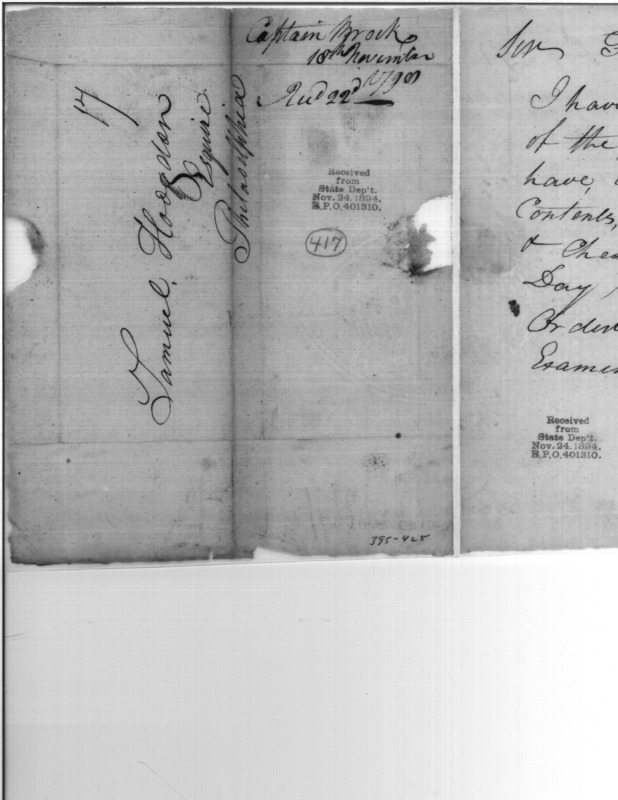 17
Samuel Hodgdon
Esquire
Philadelphia
Captain Brock
18th November
1798
Recd 22d
Received
from
State Dep't.
Nov. 24. 1894.
R.P.O. 401310.
417
395-425
Sir
I have
of the
have
Contents,
& Ches
Day
Orders
Examin
Received
from
State Dep't.
Nov. 24. 1894.
R.P.O. 401310.